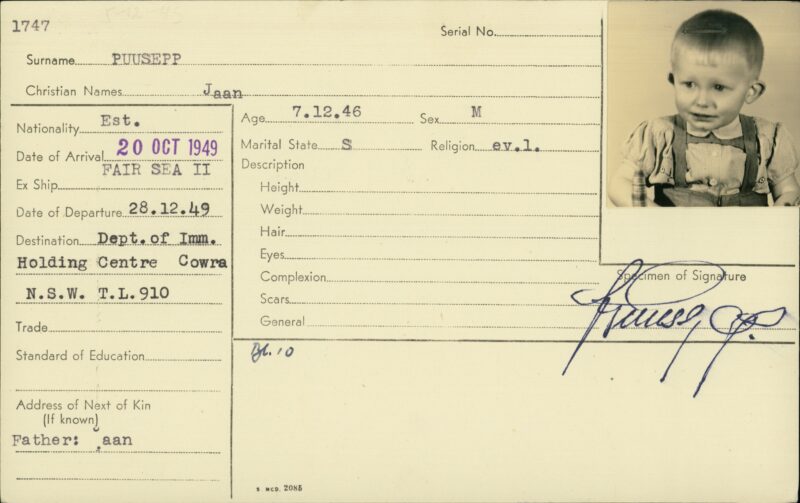 1747
Serial No.
Surname PUUSEPP
Christian Names Jaan
Nationality Est.
Date of Arrival 20 OCT 1949
FAIR SEA II
Ex Ship
Date of Departure 28.12.49
Destination Dept.of Imm.
Holding Centre Cowra
N.S.W. T.L.910
Trade
Standard of Education
Address of Next of Kin
(If known)
Father: aan
Age 7.12.46 Sex M
Marital State S Religion ev.l.
Description
Height
Weight
Hair
Eyes
Complexion
Scars
General
Bl. 10
Specimen of Signature
S MCD. 2085